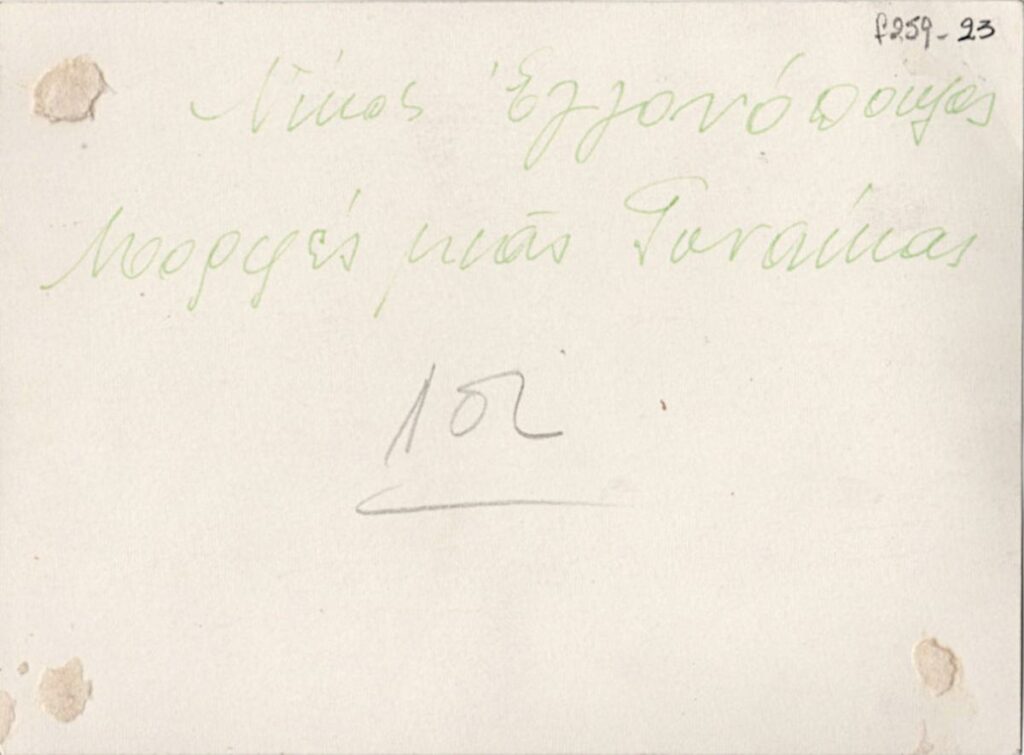 f259-23
Νίκος Ἐγγονόπουλος
Μορφές μιᾶς Γυναίκας
102